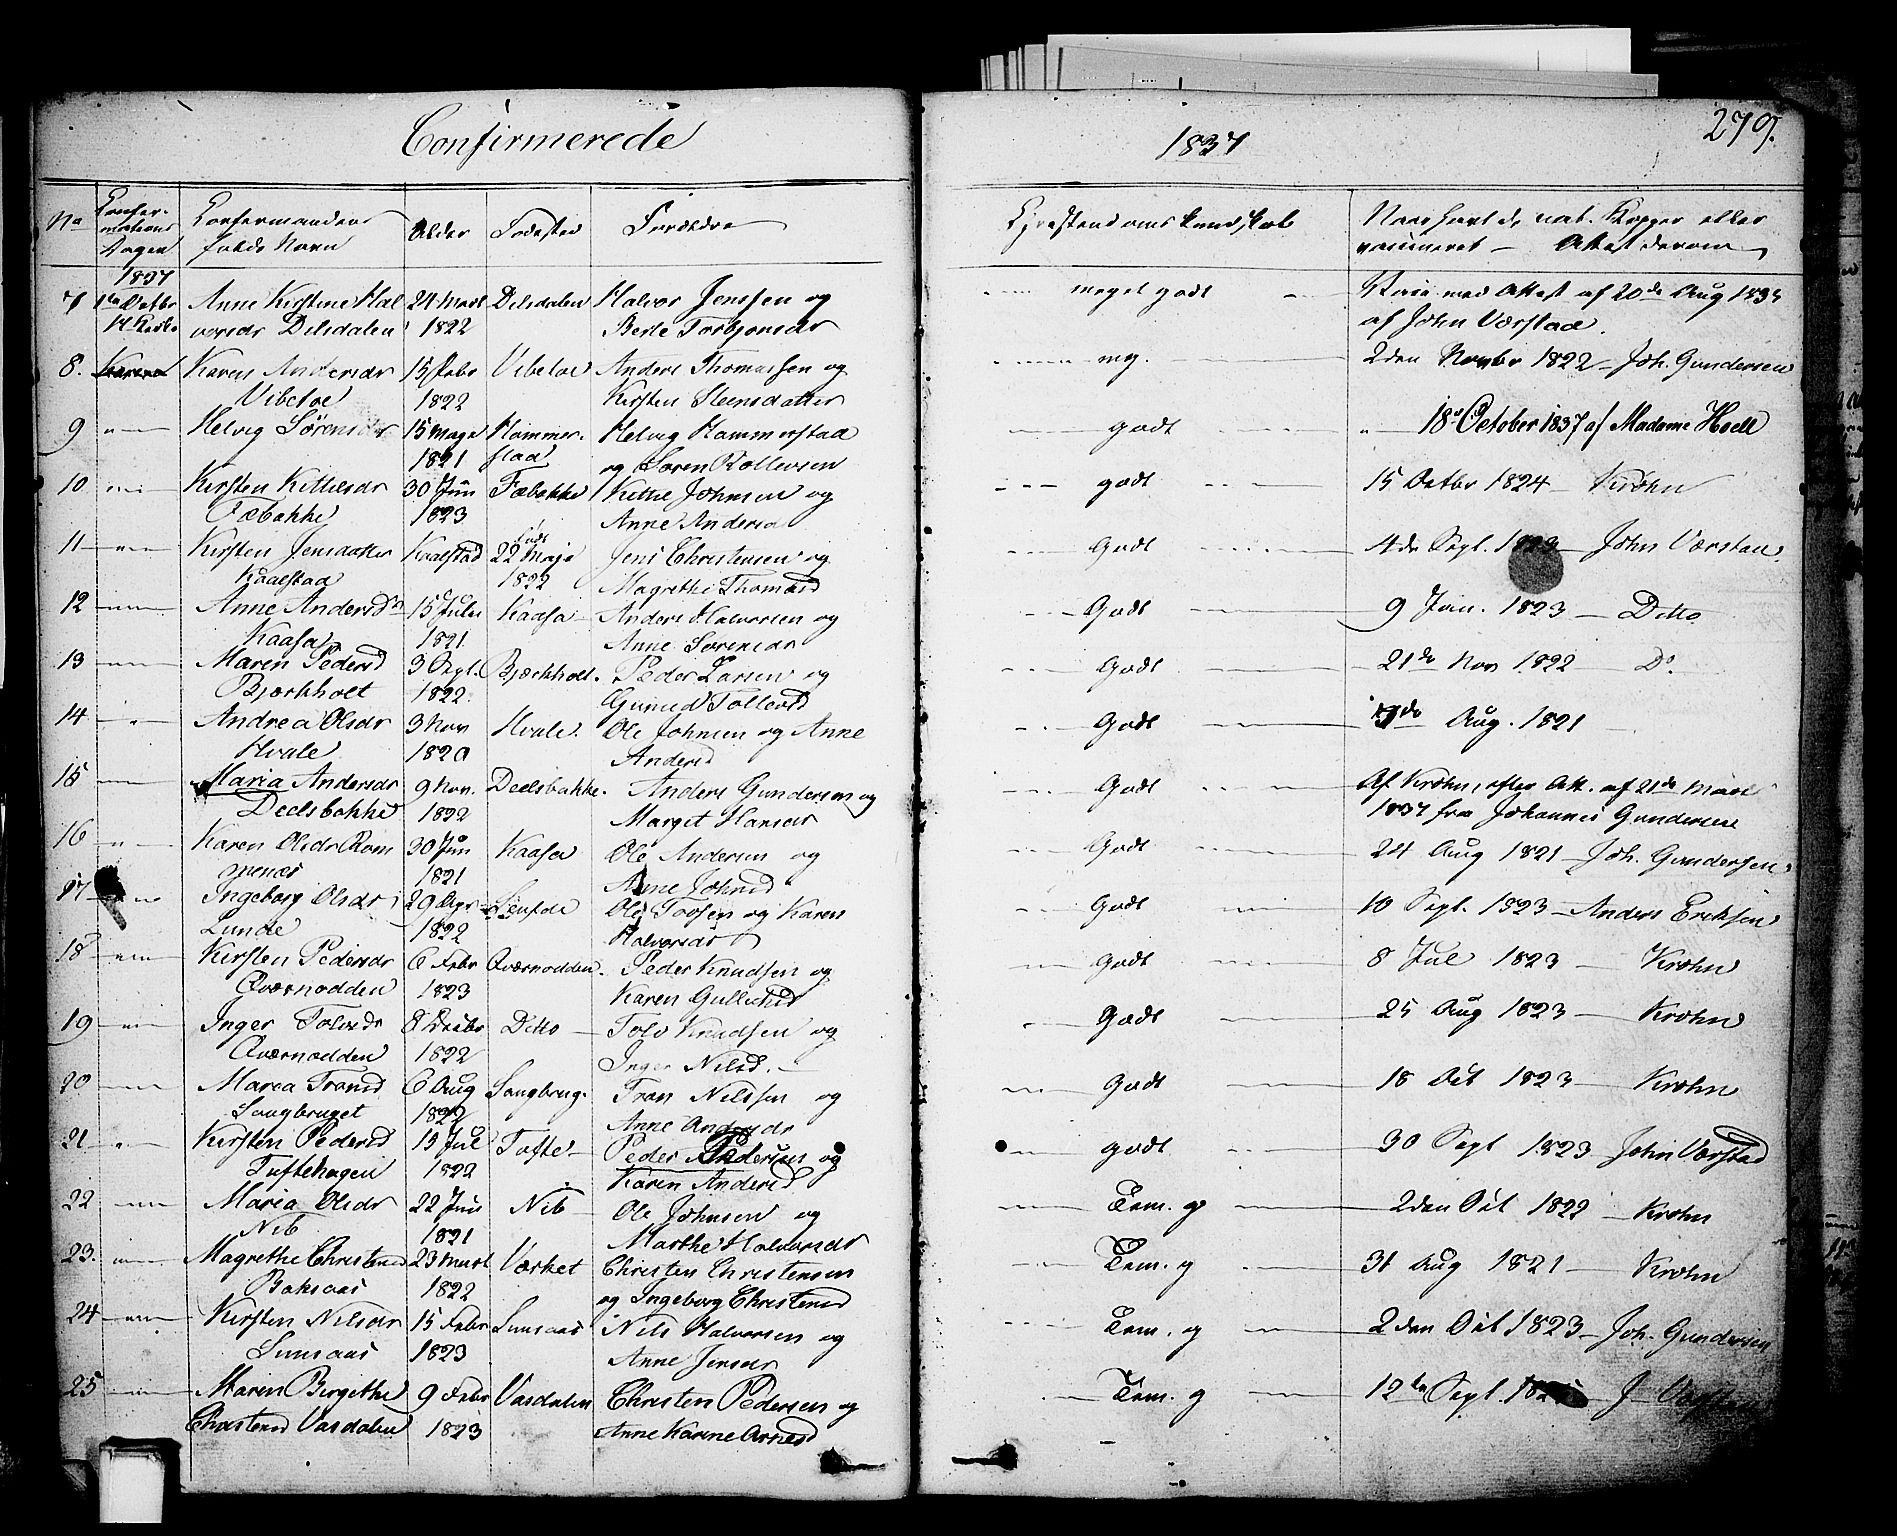 Confirmerede
1837
279.
No
Confir-
mations
Dagen
Confirmandens
fulde Navn
Alder
Fødested
Forældre
Christendoms kundskab
Naar havt de nat. Kopper eller
vaccineret — Attest derom
1837
7 1ste Octbr Anne Kirstine Hal 24 Marts Dilsdalen Halvor Jenssen og meget godt Vacc. med Attest af 20de Aug
H Kirke vorsdr Dilsdalen 1822 Berte Torbjønsdr af John Værstad.
8. Karen Andersdr 15 Febr Vibetoe Anders Thomassen og mg. 2den Novbr 1822 — Joh. Gundersen
Vibetoe 1822 Kirsten Steensdatter
9 Helvig Sørensdr 15 Maye Hammer- Helvig Hammerstad godt 18de October 1837 af Madame Hoell
1821 stad og Søren Rollevsen
10 Kirsten Kittilsdr 30 Jun Fæbakke Kittil Johnsen og godt 15 Octbr 1824 — Krøhn
Fæbakke 1823 Anne Andersd
11 Kirsten Jensdatter Kaalstad født 22 Maje Jens Christensen og Godt 4de Sept. 1823 — John Værstad.
Kaalstad 1822 Magrethe Thomasd
12 Anne Andersd 15 Julii Kaasa Anders Halvorsen og Godt 9 Jan. 1823 — Ditto
Kaasa 1821 Anne Sørensdr
13 Maren Pedersd 3 Sept. Bjerkholt. Peder Larsen og Godt 21de Nov 1822 — Do.
Bjørkholt 1822 Gunild Tollevsd
14 Andrea Olsdr 3 Nov Hvale. Ole Johnsen og Anne Godt Aug. 1821
Hvale 1820 Andersd
15 Maria Andersdr 9 Nov. Deelsbakke. Anders Gundersen og Godt Af Krøhn, efter Att. af 21de Marts
Deelsbakke 1822 Marget Hansdr 1837 fra Johannes Gundersen
16 Karen Olsdr Rom 30 Jun Kaasa Ole Andersen og Godt 24 Aug 1821 — Joh. Gundersen.
ognæs 1821 Anne Johnsd
17 Ingeborg Olsdr 29 Apr Ole Torsen og Karen Godt 10 Sept. 1823 — Anders Ericksen
Lunde 1822 Halvorsdr
18 Kirsten Pedersdr 6 Febr Qværnodden. Peder Knudsen og Godt 8 Jul 1823 — Krøhn
Qværnodden 1823 Karen Gulliksd
19 Inger Tolvsdr 8 Decbr Ditto Tolv Knudsen og Godt 25 Aug 1823 — Krøhn
Qværnodden 1822 Inger Nilsd.
20 Maria Fransd 6 Aug Saugbrug. Fran Nilssen og Godt 18 Oct 1823 — Krøhn
Saugbruget 1822 Anne Andersdr
21 Kirsten Pedersd 15 Jul Tufte Peder Andersen og godt 30 Sept 1823 John Værstad
Tuftehagen 1822 Karen Andersd
22 Maria Olsdr 22 Jun Nib Ole Johnsen og Tem. g 2den Oct 1822 — Krøhn
Nib 1821 Marthe Halvorsdr
23. Magrethe Christensd 23 Marts Værket Christen Christensen Tem. g 31 Aug 1821 — Krøhn
Baksaas 1822 og Ingeborg Christensd
24 Kirsten Nilsdr 15 Febr Sunsaas Nils Halvorsen og Tem. g 2den Oct 1823 — Joh. Gundersen
Sunsaas 1823 Anne Jensdr
25 Maren Birgethe 9 Febr Vasdalen Christen Pedersen og Tem. g 12te Sept.
Christensd Vasdalen 1823 Anne Karine Arnesd